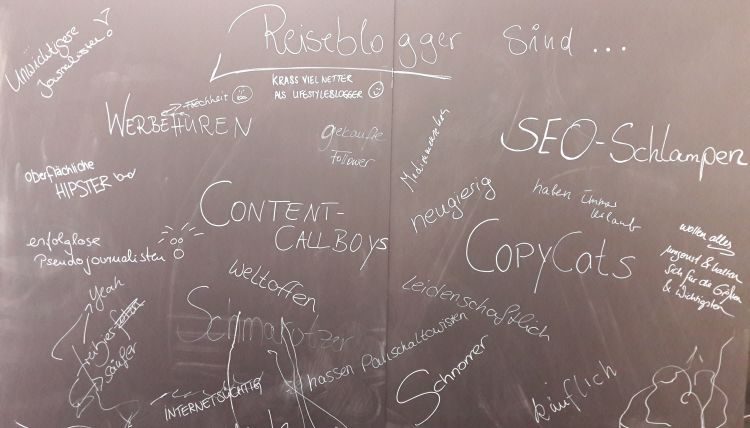 Unwichtigere
Journalisten!
Reiseblogger sind ...
KRASS VIEL NETTER
ALS LIFESTYLEBLOGGER
Frechheit
WERBEHUREN
gekaufte
Follower
Medienmenschen
SEO-Schlampen
oberflächliche
HIPSTER
neugierig
haben immer
Urlaub
CONTENT-
CALLBOYS
erfolglose
Pseudojournalisten
CopyCats
wollen alles
umsonst & halten
sich für die Größten
& Wichtigsten
Yeah
Weltoffen
Leidenschaftlich
Schmarotzer
säufer
hassen Pauschaltouristen
Schnorrer
INTERNETSÜCHTIG
käuflich